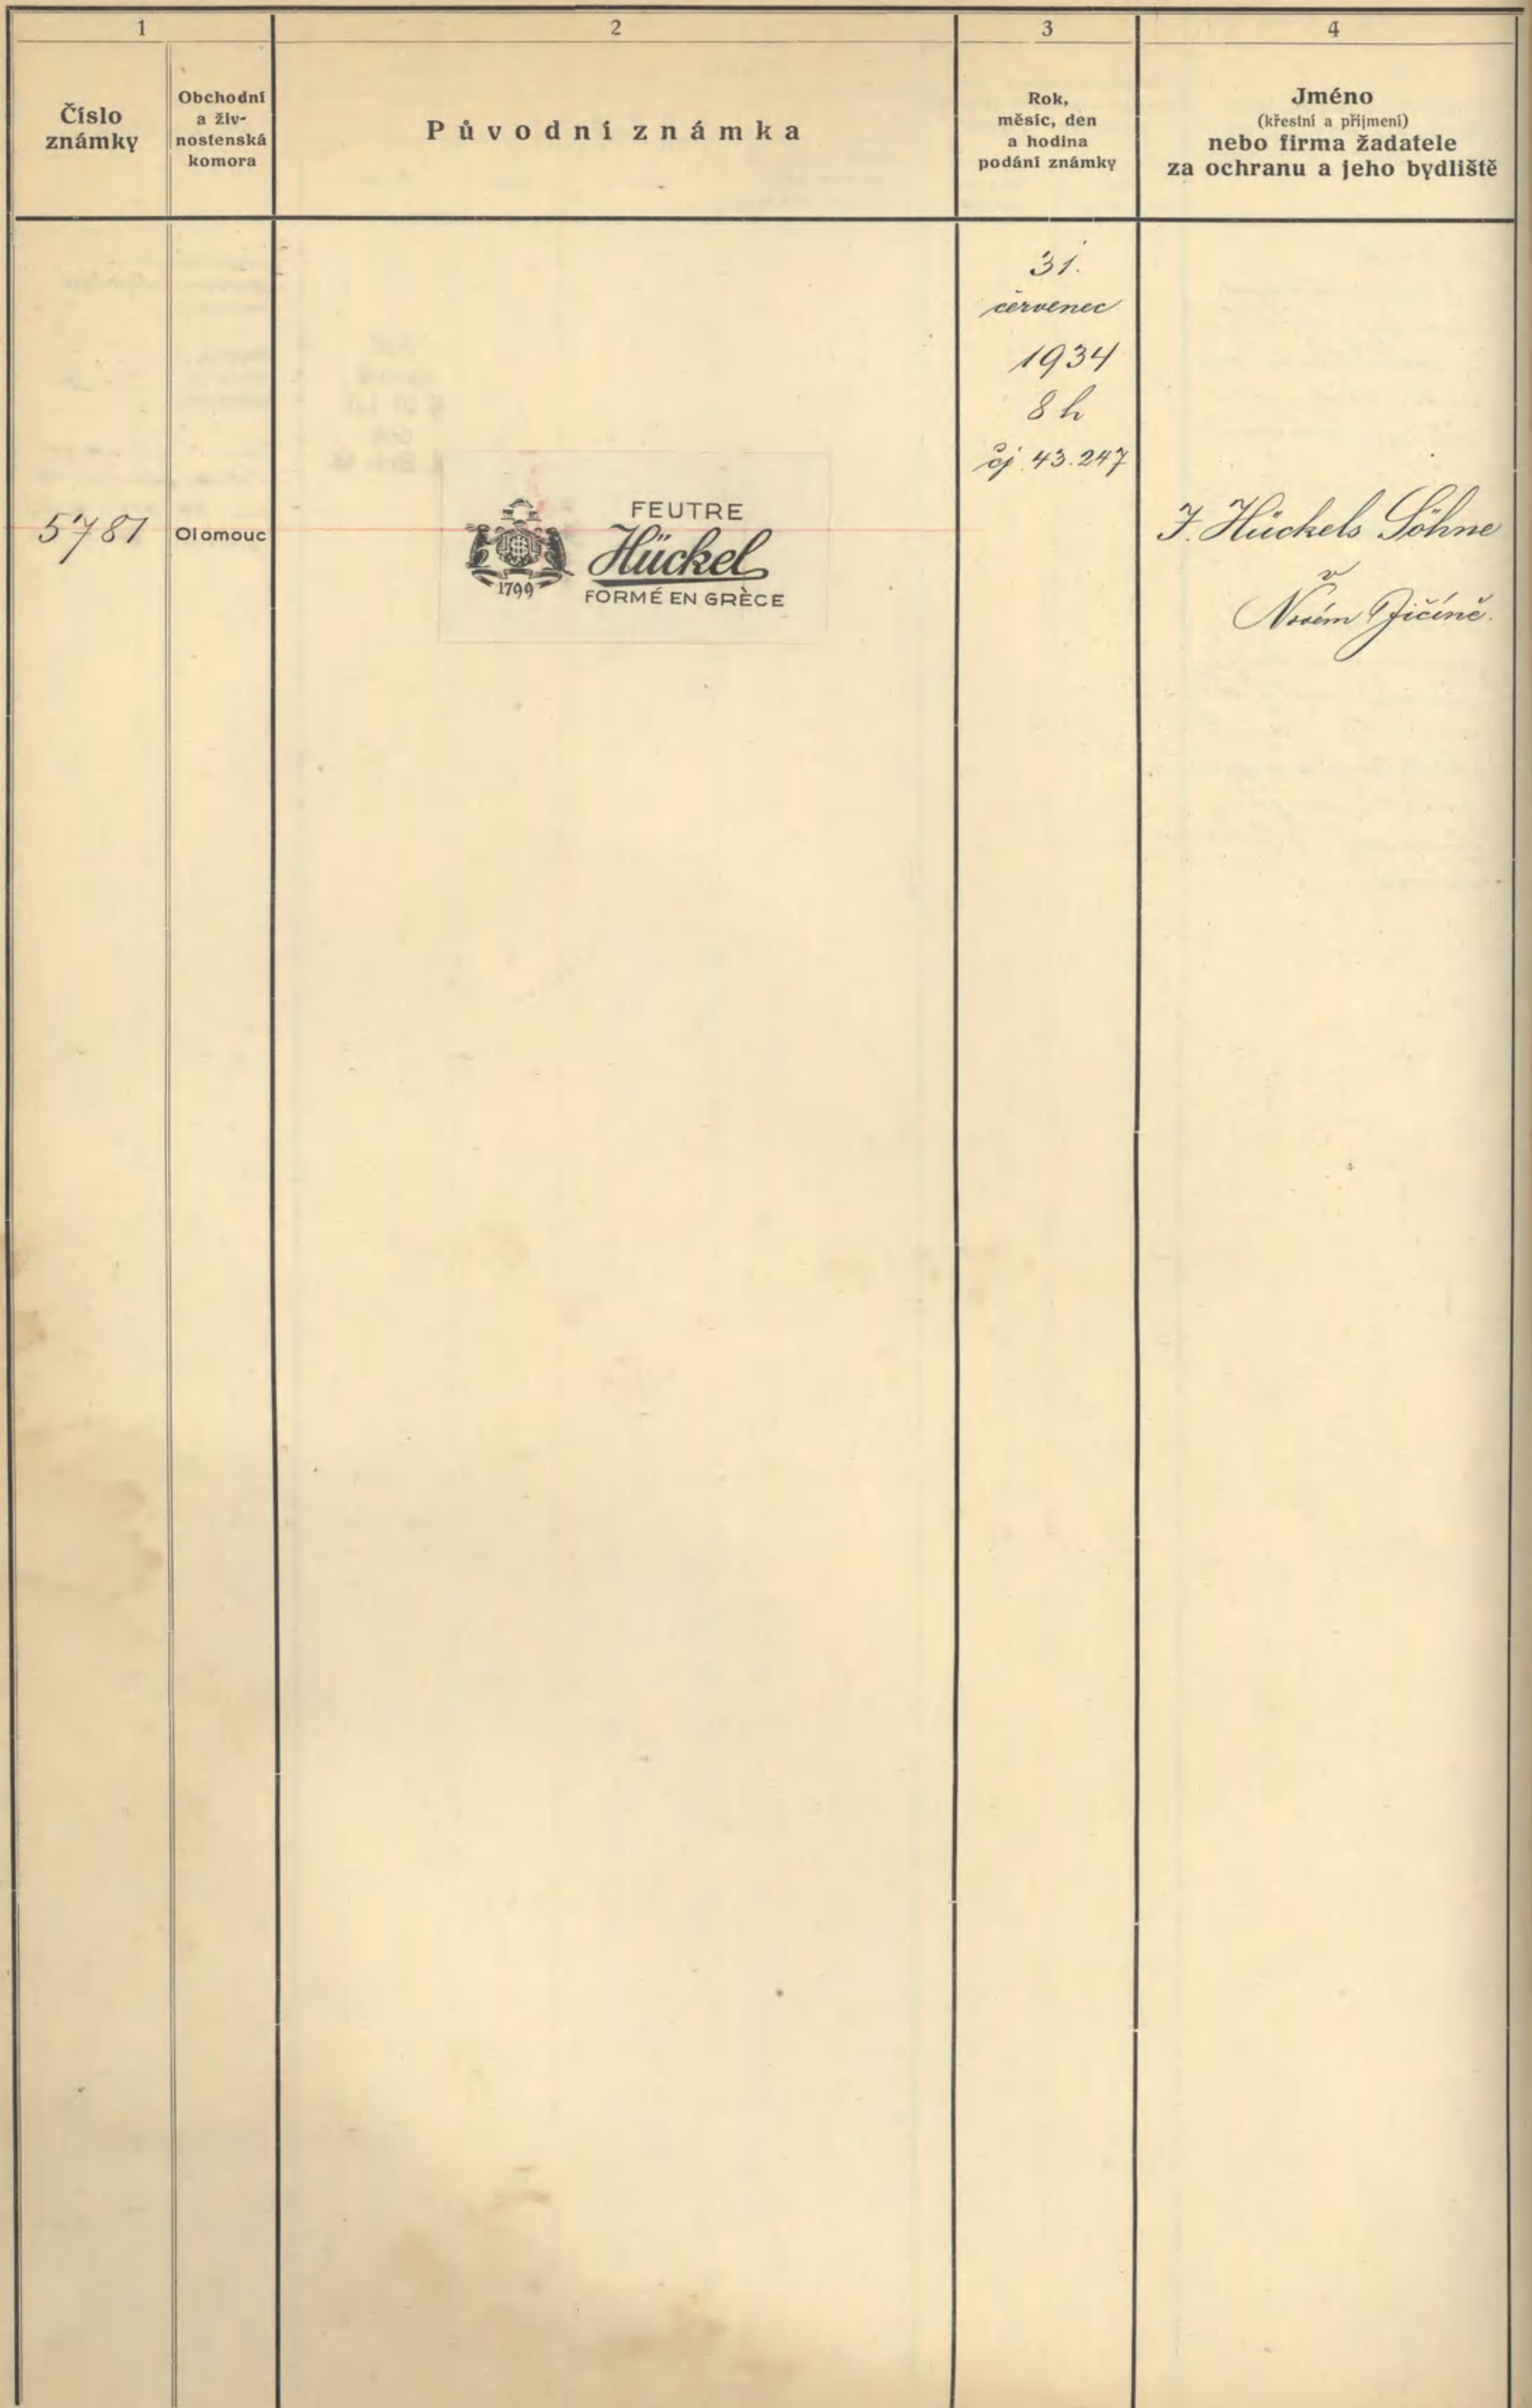 1
2
3
4
Číslo
známky
Obchodní
a živ-
nostenská
komora
Původní známka
Rok,
měsíc, den
a hodina
podání známky
Jméno
(křestní a příjmení)
nebo firma žadatele
za ochranu a jeho bydliště
31.
červenec
1934
8 h
čj. 43.247
5781
Olomouc
FEUTRE
Hückel
1799
FORMÉ EN GRÈCE
J. Hückels Söhne
v
Novém Jičíně.